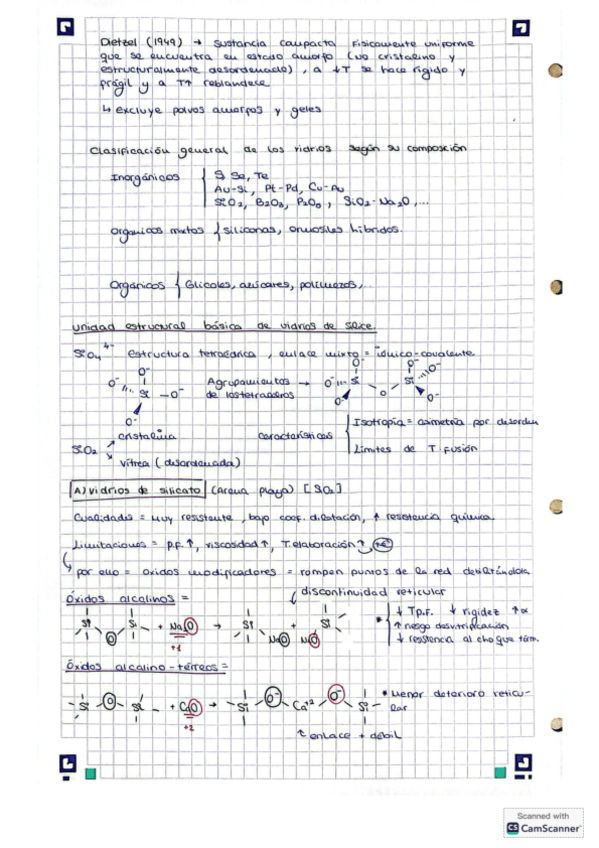 Dietzel (1949) → sustancia compacta físicamente uniforme
que se encuentra en estado amorfo (no cristalino y
estructuralmente desordenado), a ↓T se hace rígido y
frágil y a T↑ reblandece
↳ excluye polvos amorfos y geles
Clasificación general de los vidrios según su composición
Inorgánicos { S, Se, Te
Au-Si, Pt-Pd, Cu-Au
SiO2, B2O3, P2O5, SiO2-Na2O,...
Orgánicos mixtos { siliconas, ormosiles híbridos.
Orgánicos { Glicoles, azúcares, polímeros,..
Unidad estructural básica de vidrios de sílice.
SiO4 4- estructura tetraédrica, enlace mixto = iónico-covalente
O- Si -O- O- O-
Agrupamientos → de los tetraedros
O- Si O Si O-
SiO2 → cristalina
→ vítrea (desordenada)
características { Isotropía = asimetría por desorden
Límites de T fusión
A) vidrios de silicato (arena playa) [SiO2]
Cualidades = muy resistente, bajo coef. dilatación, ↑ resistencia química.
Limitaciones = p.f.↑, viscosidad↑, T.elaboración↑
↳ por ello = óxidos modificadores = rompen puntos de la red debilitándola
discontinuidad reticular
Óxidos alcalinos =
Si O Si + Na2O → Si NaO NaO Si
+1
* { ↓ Tp.f. ↓ rigidez ↑α
↑ riesgo desvitrificación
↓ resistencia al choque térm.
Óxidos alcalino-térreos =
-Si-O-Si- + CaO → -Si-O- Ca+2 O- -Si-
+2
* Menor deterioro reticu-
lar
↑ enlace + débil
Scanned with
CS CamScanner